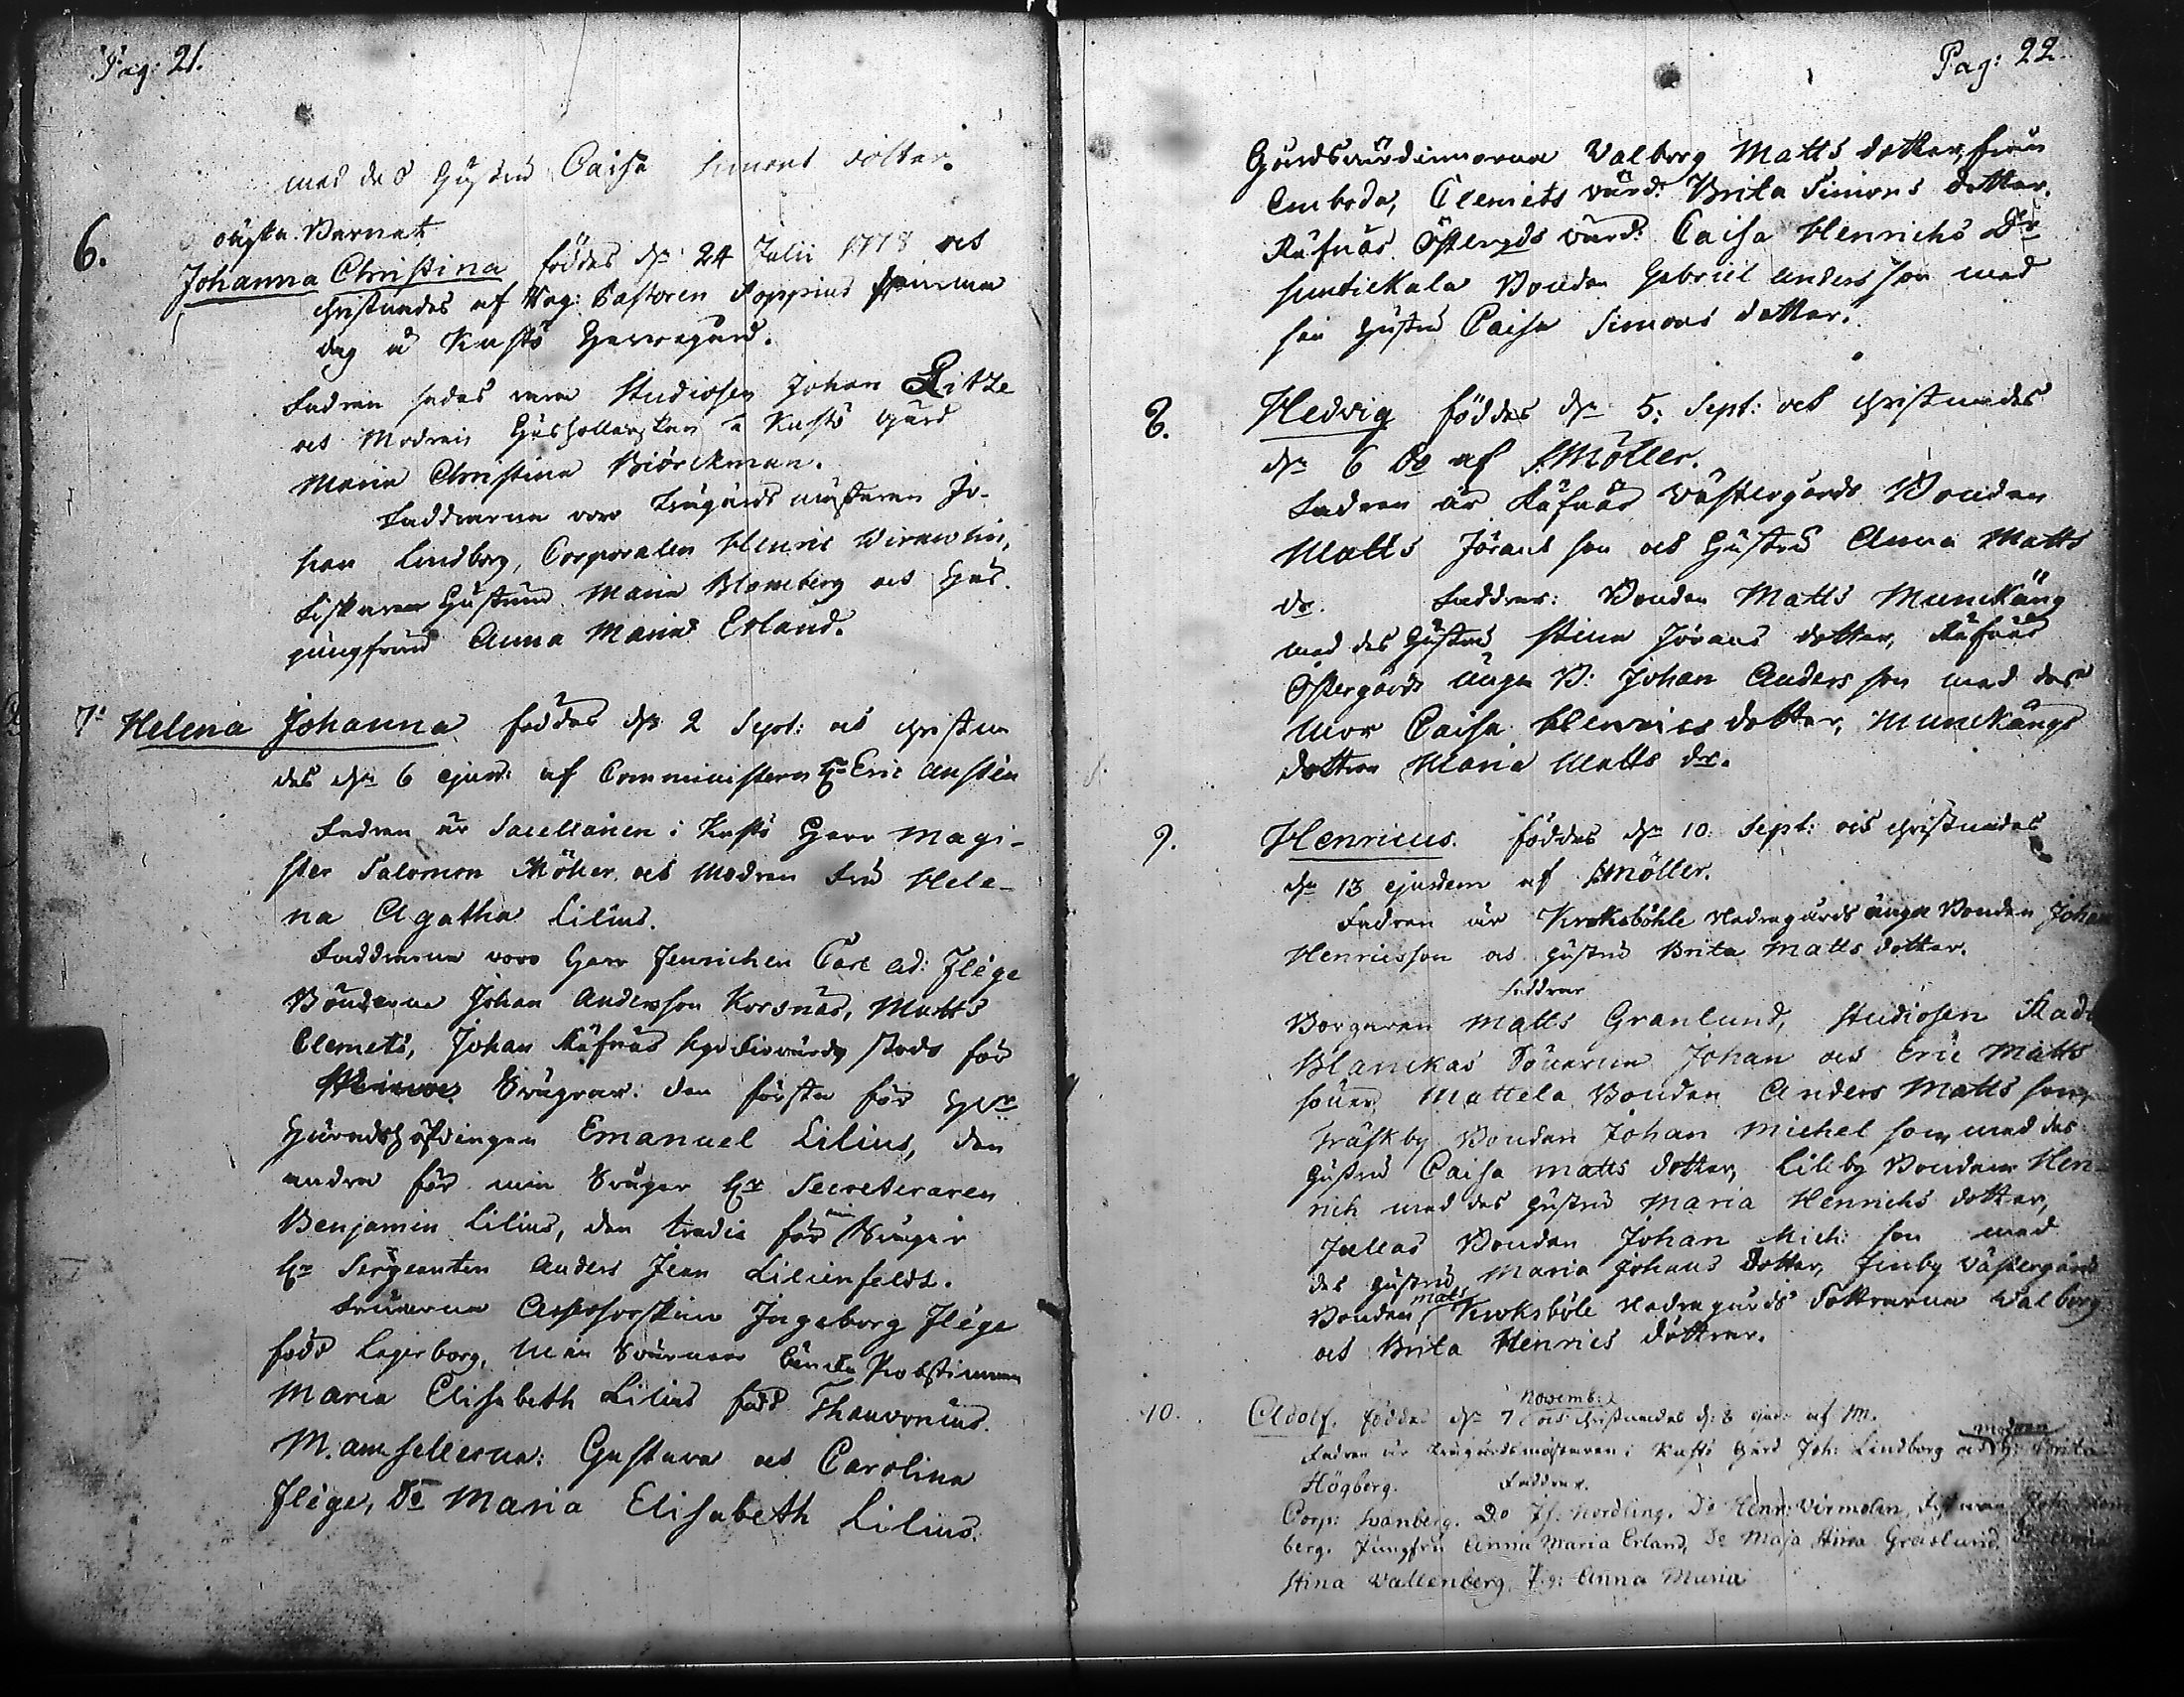 Pag: 21.
med des Hustru Caisa Simons dotter.
6. oägta Barnet
Johanna Christina föddes dn 24 Julii 1778 och
christnades af Vag: Pastoren Poppius samma
dag å Kustö Herregård.
Fadren sades vara Studiosen Johan Ritze
och Modren Hushollerskan å Kustö gård
Maria Christina Biörckman.
Faddrarna voro Trägårds mästaren Jo-
han Lindborg, Corporalen Henric
Fiskaren Hustrun Maria Blomberg och Hus-
jungfrun Anna Maria Erland.
7. Helena Johanna föddes dn 2 Sept: och christna
des dn 6 ejusd: af Comministern Hr Eric Austén
Fadren är Sacellanen i Kustö Herr Magi-
ster Salomon Möller och Modren Fru Hele-
na Agatha Lilius.
Faddrarna voro Herr Fenrichen Carl Ad: Flége
Bönderna Johan Andersson Korsnäs, Matts
Clemets, Johan Räfnäs stodo för
Svågrar: den första för Hr
Häradshöfdingen Emanuel Lilius, den
andra för min Svåger Hr Secreteraren
Benjamin Lilius, den tredie för min Svåger
Hr Sergeanten Anders Jean Lilienfeldt.
Fruarna Assessorskan Ingeborg Flége
född Lagerborg, min Svärmor Probstinnan
Maria Elisabeth Lilius född Thauvonius.
M.amsellerna: Gustava och Carolina
Flége, Do Maria Elisabeth Lilius.
Pag: 22.
Gårdsvärdinnorna Valborg Matts dotter från
Emboda, Clemets värd: Brita Simons dotter.
Räfnäs Östergds värd: Caisa Henrichs Dr
Bonden Gabriel Anders son med
sin Hustru Caisa Simons dotter.
8. Hedvig föddes dn 5: Sept: och christnades
dn 6 Do af SMöller.
Fadren är Räfnäs Västergårds Bonden
Matts Jörans son och Hustru Anna Matts
Dr. Faddrar: Bonden Matts Munckäng
med des Hustru Stina Jörans dotter, Räfnäs
Östergårds unga B: Johan Anders son med des
Mor Caisa Henrics dotter, Munckängs
dottren Maria Matts dr.
9. Henricus. föddes dn 10. Sept: och christnades
dn 13 ejusdem af SMöller.
Fadren är Kroksböhle Nedregårds unga Bonden Johan
Henricsson och Hustru Brita Matts dotter.
Faddrar
Borgaren Matts Granlund, Studiosen
Blanckas Sönerne Johan och Eric Matts
söner, Mattela Bonden Anders Matts son,
Träskby Bonden Johan Michel son med des
Hustru Caisa Matts dotter, Lileby Bonden Hen-
rich med des Hustru Maria Henrichs dotter,
Jullas Bonden Johan Mich: son med
des Hustru Maria Johans Dotter, Finby Västergårds
Bonden Mats, Kroksböle Nedregårds dottrarna Walborg
och Brita Henrics döttrar.
10. Adolf. föddes dn 7 Novemb: och christnades d: 8 ejusd: af M.
Fadren är Trägårdsmästaren i Kustö Gård Joh: Lindborg och Modren H: Brita
Högberg. Faddrar.
Corp: Svanberg. Do Js: Nordling. Do Henr: Virmelin,
berg. Jungfru Anna Maria Erland, Do Maja Stina Gräslund,
Stina Vallenberg, Anna Maria